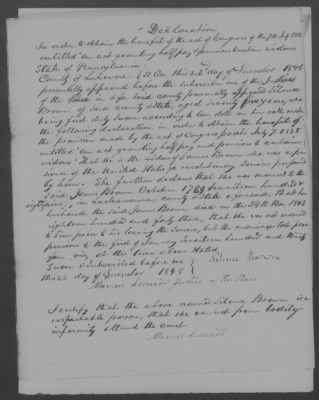 "Declaration
In order to obtain the benefit of the act of Congress of the 7th July 1838
entitled "An act granting half pay & pensions to certain widows
State of Pennsylvania
County of Luzerne } SS On this 2d day of December 1845
personally appeared before the subscriber one of the Justices
of the Peace in & for said county personally appeared Silence
Brown of said county & state, aged Seventy five years, who
being first duly sworn according to law doth on her oath make
the following declaration in order to obtain the benefit of
the provision made by the act of Congress passed July 7 1838
entitled "An act granting half pay and pensions to certain
widows" That she is the widow of James Brown who was a pen-
sioner of the United States for revolutionary services performed
by him. She further declares that she was married to the
said James Brown October 1789 Seventeen hundred &
eighty nine, in county & State aforesaid, that her
husband the said James Brown died on the 24th Nov 1843
eighteen hundred and forty three, that she was not married
to him prior to his leaving the Service, but the marriage took place
previous to the first of January Seventeen hundred and Ninety
four, viz, at the time above stated.
Sworn & Subscribed before me } Silence Brown
this 2d day of December 1845
Leonard Justice of the Peace
I certify that the above named Silence Brown is a
respectable person, that she cannot from bodily
infirmity attend the court
Leonard